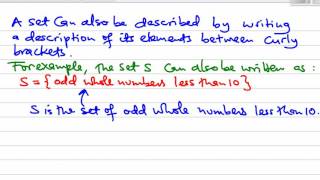 A set can also be described by writing
a description of its elements between curly
brackets.
For example, the set S can also be written as :
S = { odd whole numbers less than 10 }
S is the set of odd whole numbers less than 10.